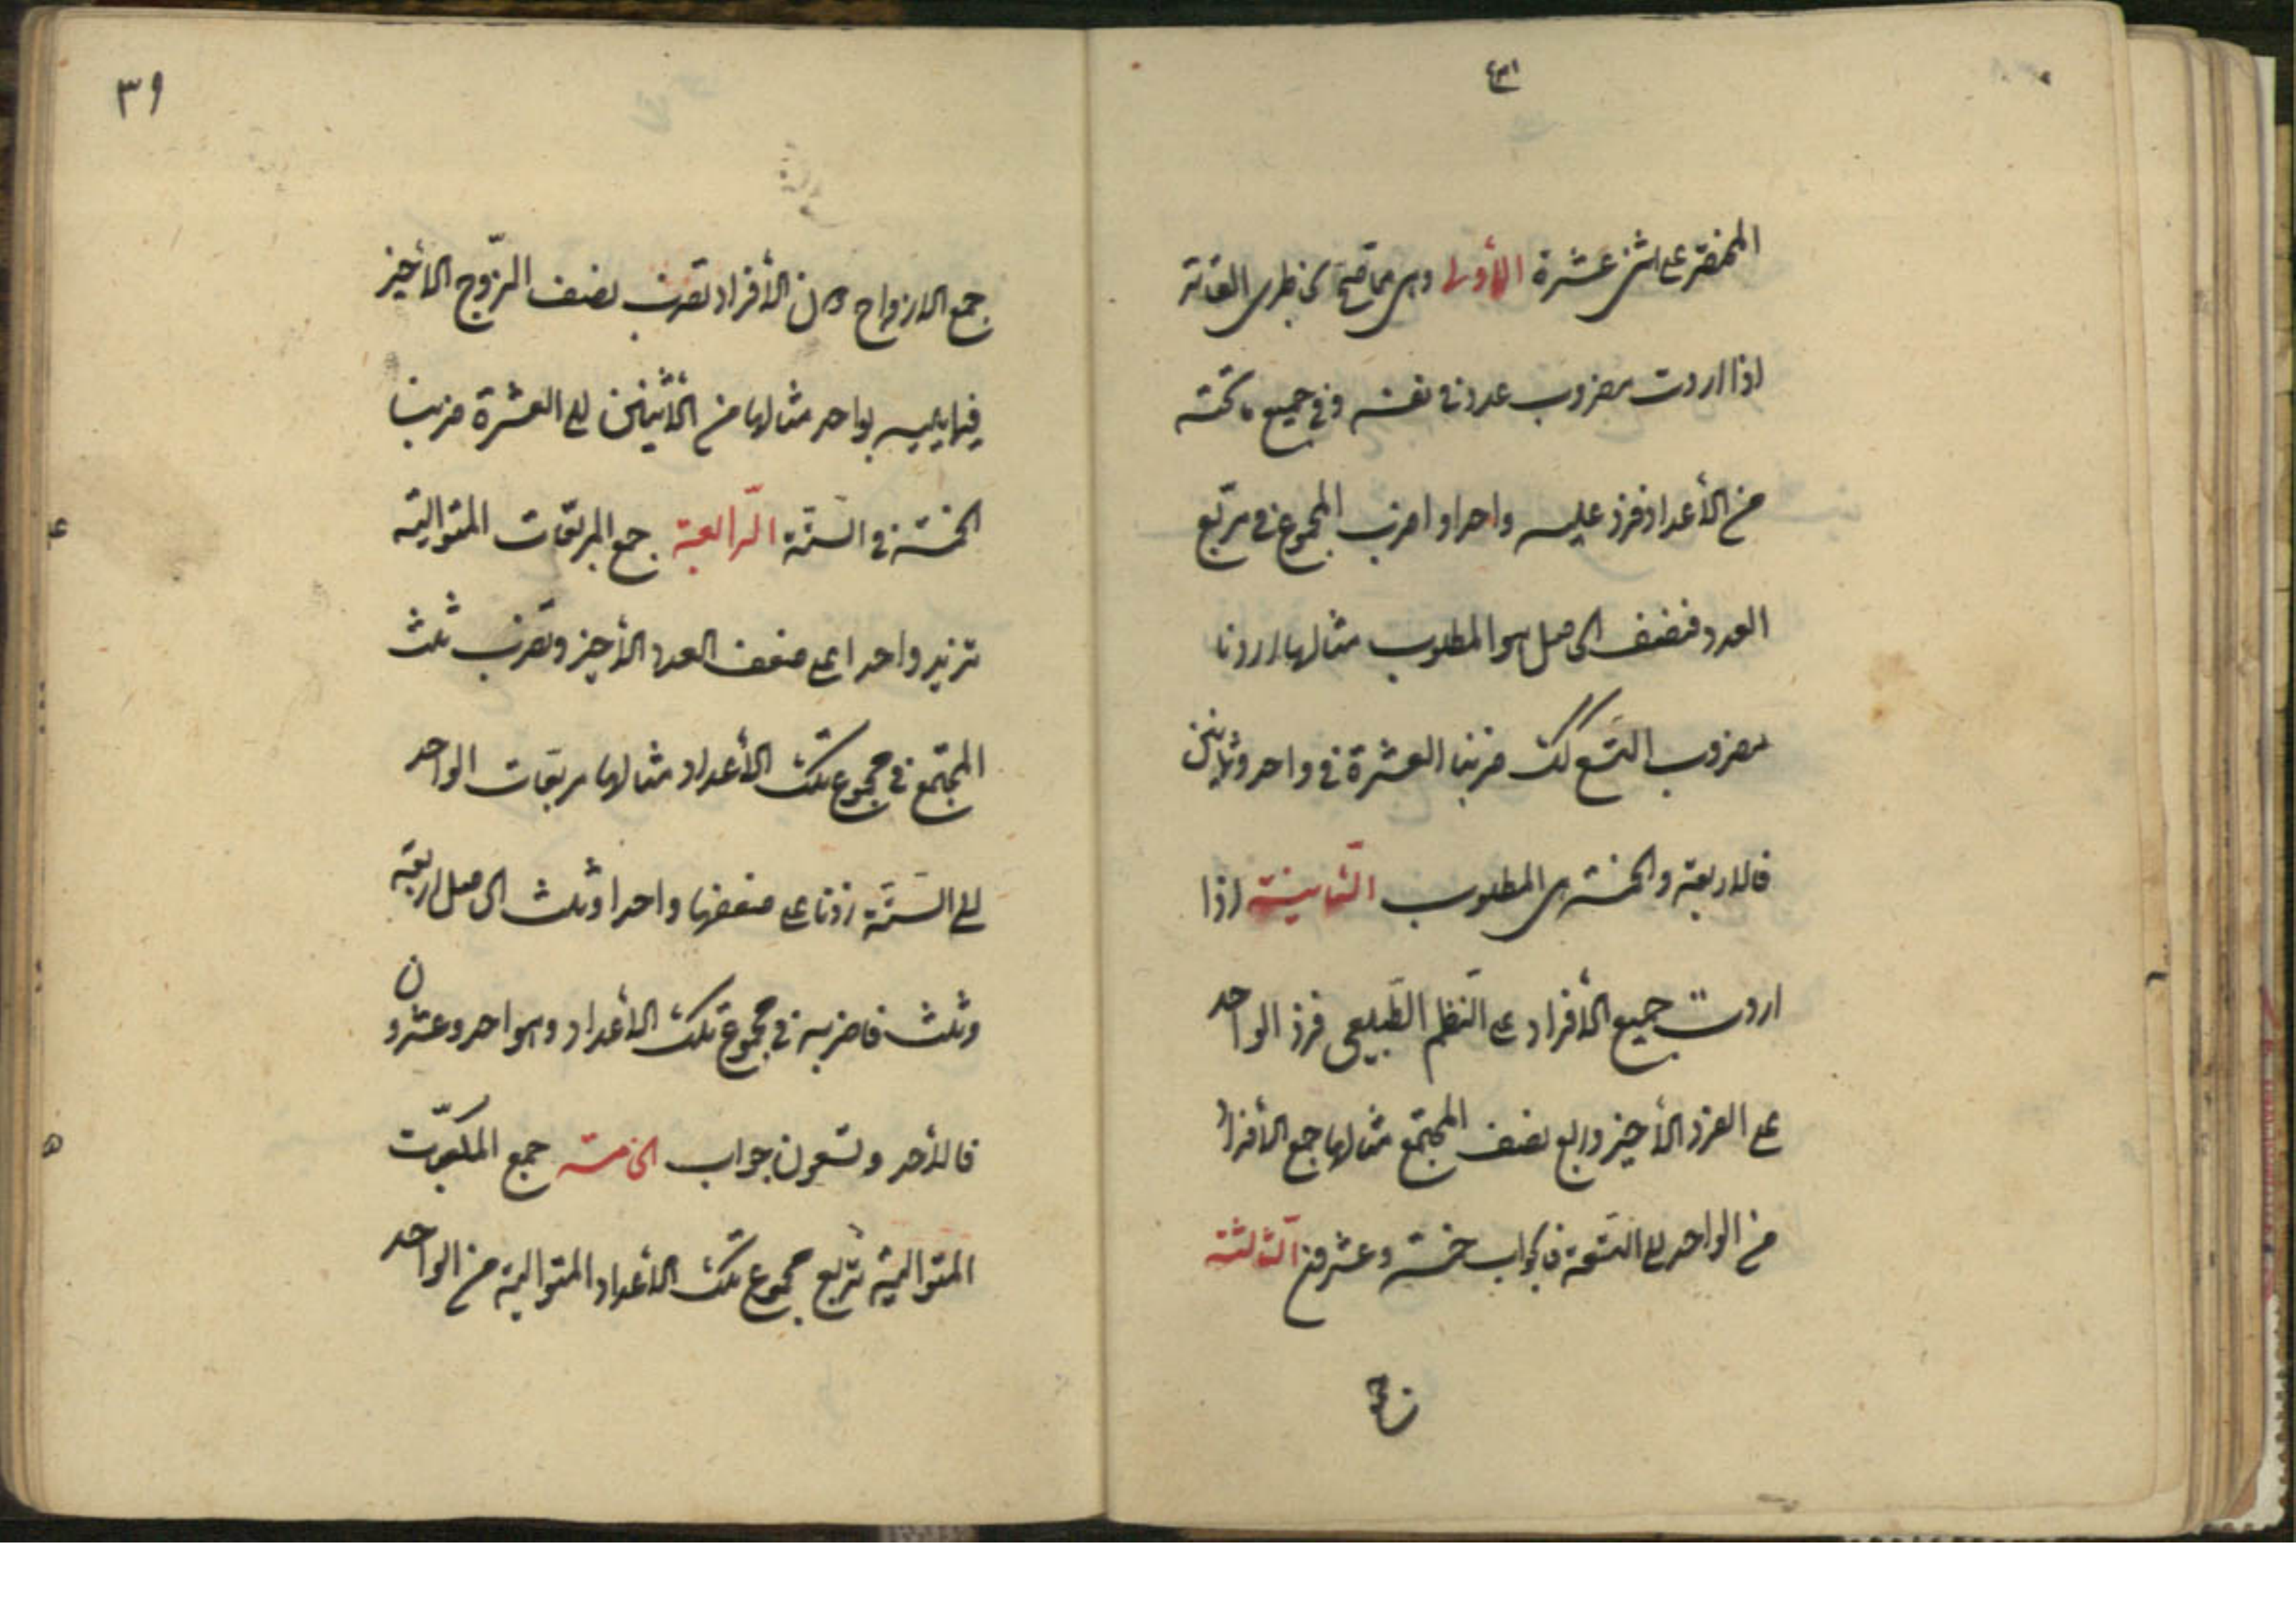 المختصر على اثنى عشرة الأولى وهى مما سنح بخاطرى الفاتر
اذا اردت مضروب عدد فى نفسه وفى جميع ما تحته
من الأعداد فزد عليه واحدا واضرب المجموع فى مربّع
العدد فنصف الحاصل هو المطلوب مثالها اردنا
مضروب التسعة كذلك ضربنا العشرة فى واحد وثمانين
فالاربعمائة والخمسة هى المطلوب الثّانية اذا
اردت جميع الأفراد على النّظم الطّبيعى فزد الواحد
على الفرد الأخير وربّع نصف المجتمع مثالها جمع الأفراد
من الواحد الى التّسعة فالجواب خمسة وعشرون الثّالثة
٣٩
جمع الازواج دون الأفراد تضرب نصف الزّوج الأخير
فيما يليه بواحد مثالها من الأثنين الى العشرة ضربنا
الخمسة فى السّتّة الرّابعة جمع المربّعات المتوالية
تزيد واحدا على ضعف العدد الأخير وتضرب ثلث
المجتمع فى مجموع تلك الأعداد مثالها مربّعات الواحد
الى السّتّة زدنا على ضعفها واحدا وثلث الحاصل اربعة
وثلث فاضربه فى مجموع تلك الأعداد وهو واحد وعشرون
فالأحد وتسعون جواب الخامسة جمع المكعّبات
المتوالية تربّع مجموع تلك الأعداد المتوالية من الواحد